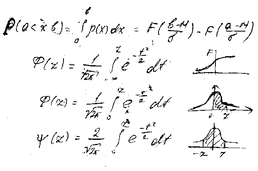 P(a<x<b) = ∫_a^b p(x)dx = F((b-M)/σ) - F((a-M)/σ)
Φ(z) = 1/√2π ∫ e^(-t²/2) dt
F
Φ(z) = 1/√2π ∫_0^z e^(-t²/2) dt
0 z
Ψ(z) = 2/√2π ∫_0^z e^(-t²/2) dt
-z z